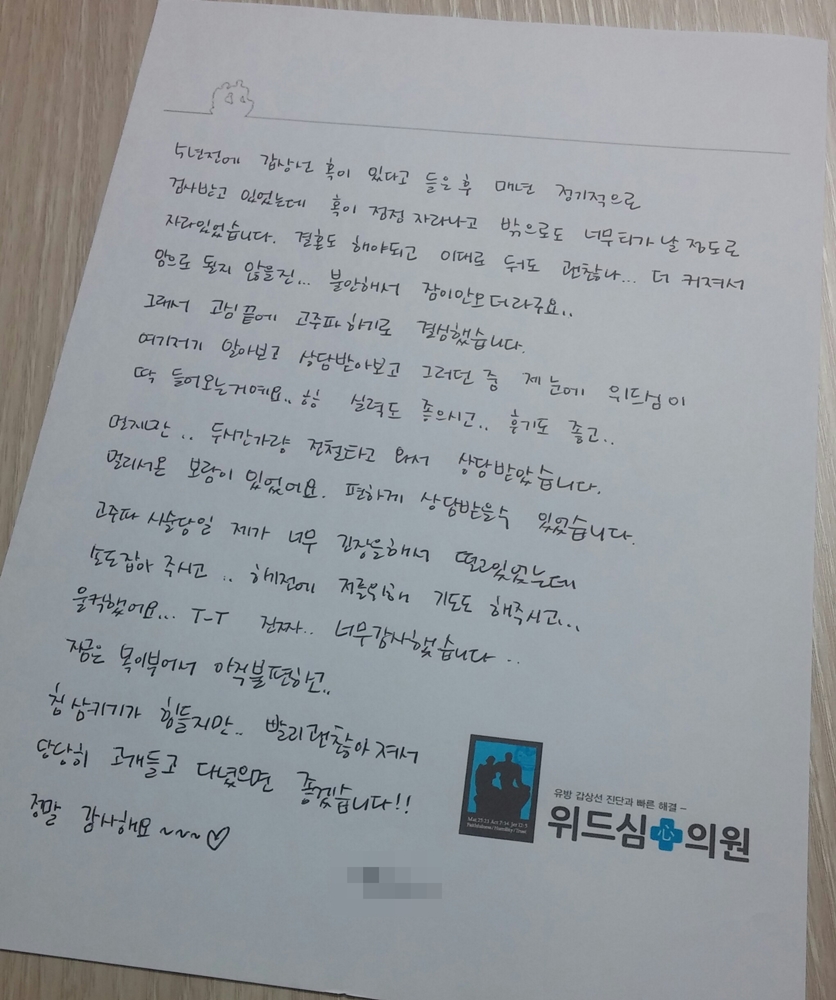 5년전에 갑상선 혹이 있다고 들은 후 매년 정기적으로
검사받고 있었는데 혹이 점점 자라나고 밖으로도 너무 티가 날 정도로
자라있었습니다. 결혼도 해야되고 이대로 둬도 괜찮나... 더 커져서
암으로 될지 않을진... 불안해서 잠이안오더라구요..
그래서 고심끝에 고주파하기로 결심했습니다.
여기저기 알아보고 상담받아보고 그러던 중 제 눈에 위드심이
딱 들어오는거예요.. 힝 실력도 좋으시고.. 후기도 좋고..
멀지만.. 두시간가량 전철타고 와서 상담받았습니다.
멀리서온 보람이 있었어요. 편하게 상담받을수 있었습니다.
고주파 시술당일 제가 너무 긴장을해서 떨고있었는데
손도잡아 주시고.. 하기전에 저를위해 기도도 해주시고...
울컥했어요... T-T 진짜.. 너무감사했습니다..
지금은 목이부어서 아직불편하고..
침 삼키기가 힘들지만.. 빨리괜찮아져서
당당히 고개들고 다녔으면 좋겠습니다!!
정말 감사해요 ~~~♡
유방 갑상선 진단과 빠른 해결 –
위드심 心 의원